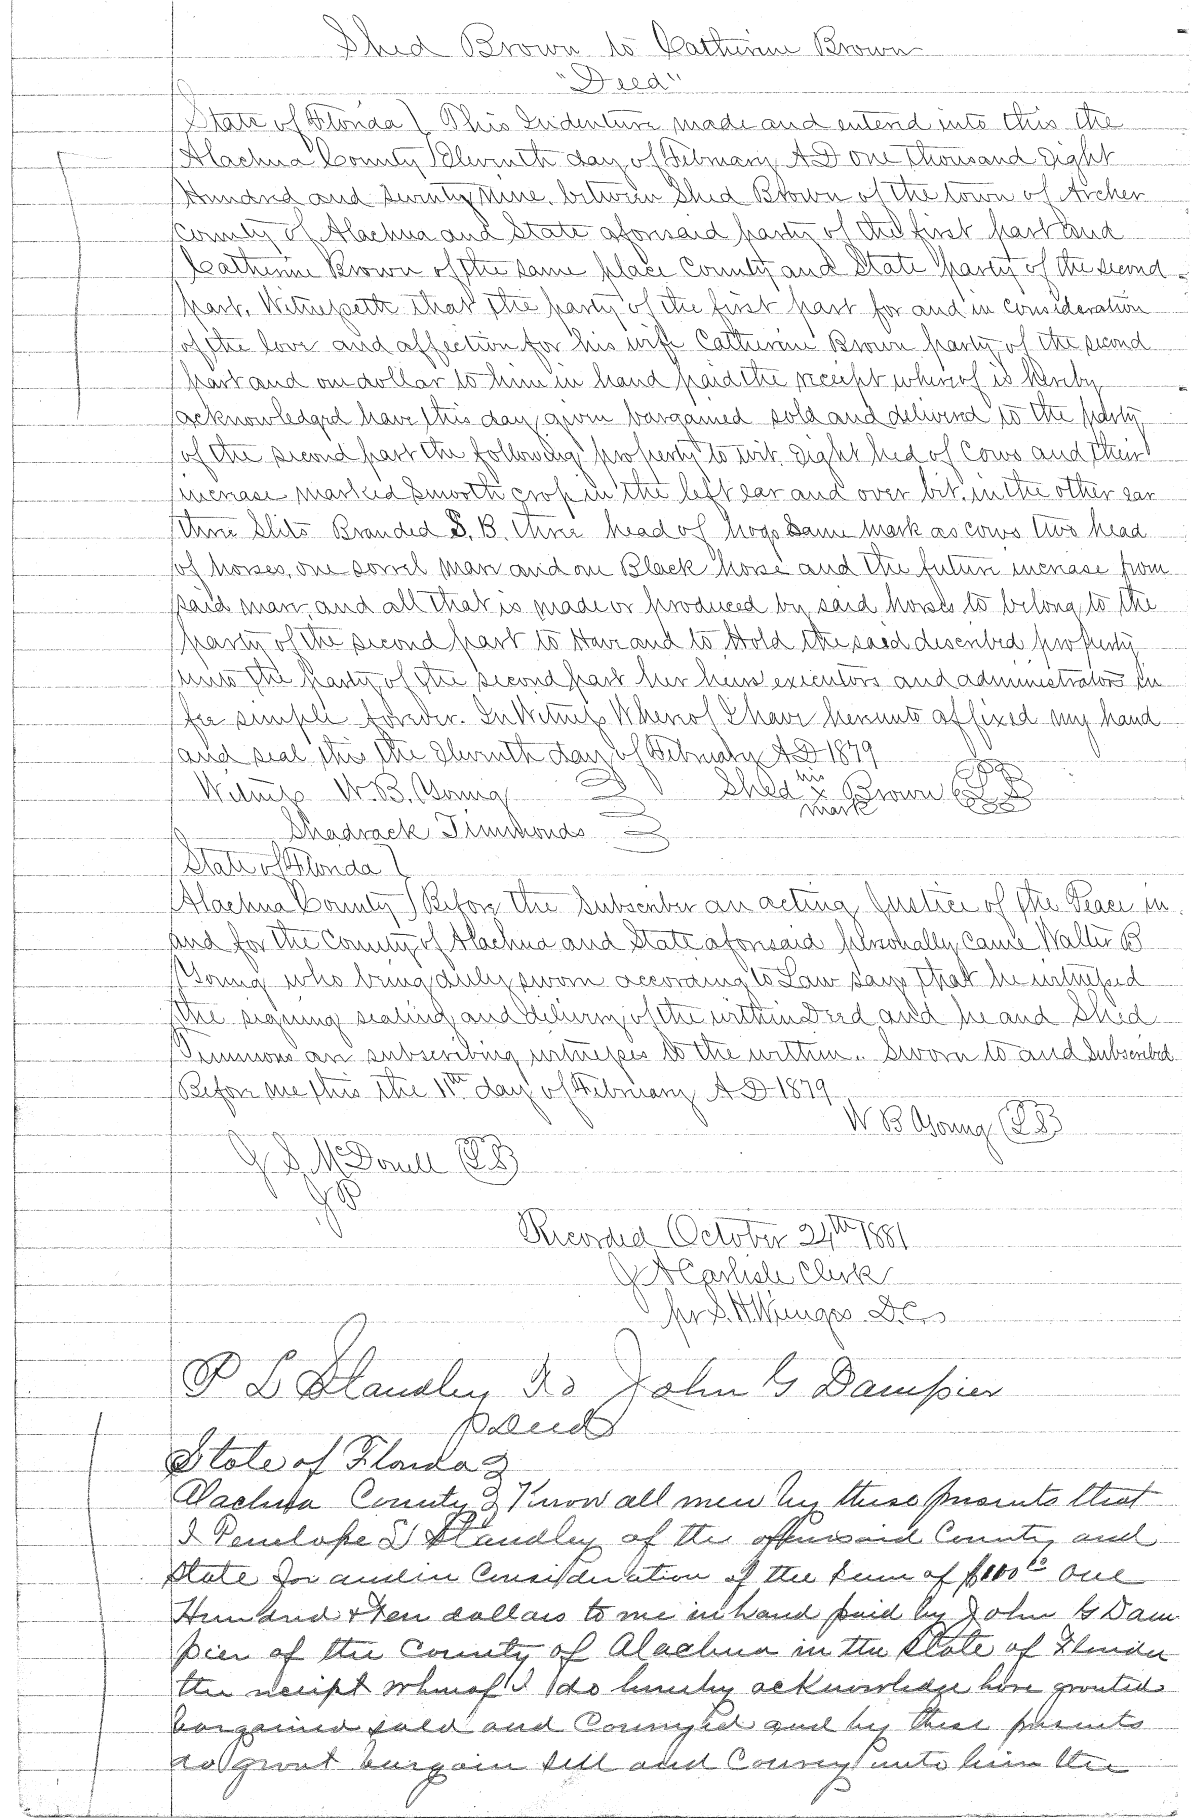 Shed Brown to Catherine Brown
"Deed"
State of Florida } This Indenture made and enterd into this the
Alachua County } Eleventh day of February A D one thousand Eight
Hundred and Seventy Nine. between Shed Brown of the town of Archer
County of Alachua and State aforesaid party of the first part and
Catherine Brown of the same place County and State party of the second
part. Witnesseth that the party of the first part for and in consideration
of the love and affection for his wife Catherine Brown party of the second
part and one dollar to him in hand paid the receipt whereof is hereby
acknowledged have this day given bargained sold and delivered to the party
of the second part the following property to wit. Eight hed of Cows and their
increase marked Smooth crop in the left ear and over bit. in the other ear
three Slits Branded S. B. three head of hogs Same mark as cows two head
of horses, one sorrel mare and one Black horse and the future increase from
said mare, and all that is made or produced by said horses to belong to the
party of the second part to Have and to Hold the said described property
unto the party of the second part her heirs executors and administrators in
fee simple forever. In Witness Whereof I have hereunto affixed my hand
and seal this the Eleventh day of February A D 1879
Witness W. B. Young Shed his x mark Brown (L S)
Shadrack Timmonds
State of Florida }
Alachua County } Before the Subscriber an acting Justice of the Peace in
and for the County of Alachua and State aforesaid personally came Walter B
Young who being duly sworn according to Law says that he witnessed
the signing sealing and delivery of the within Deed and he and Shed
Timmons are subscribing witnesses to the within.. Sworn to and Subscribed
Before me this the 11th day of February A D 1879
W B Young (L S)
J S McDonell (L S)
J P
Recorded October 24th 1881
J A Carlisle Clerk
pr S. H. Wienges D. C.
P L Standley To John G Dampier
Deed
State of Florida }
Alachua County } Know all men by these presents that
I Penelope L Standley of the afforesaid County and
State for and in Consideration of the Sum of One
Hundred & ten dollars to me in hand paid by John G Dam
pier of the County of Alachua in the State of Florida
the receipt whereof I do hereby acknowledge have granted
bargained sold and Conveyed and by these presents
do grant bargain sell and Convey unto him the